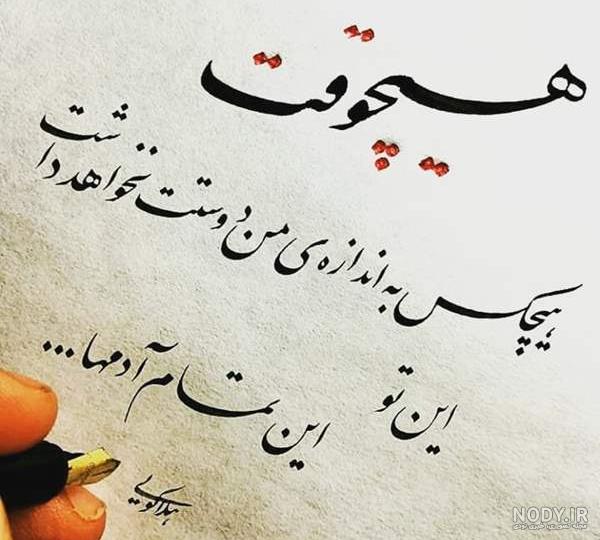 هیچوقت
هیچکس به اندازه‌ی من دوستت نخواهد داشت
این تو
این تمام آدمها...
NODY.IR